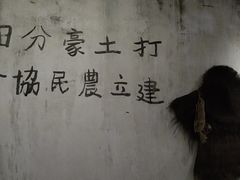 打土豪分田
建立農民協